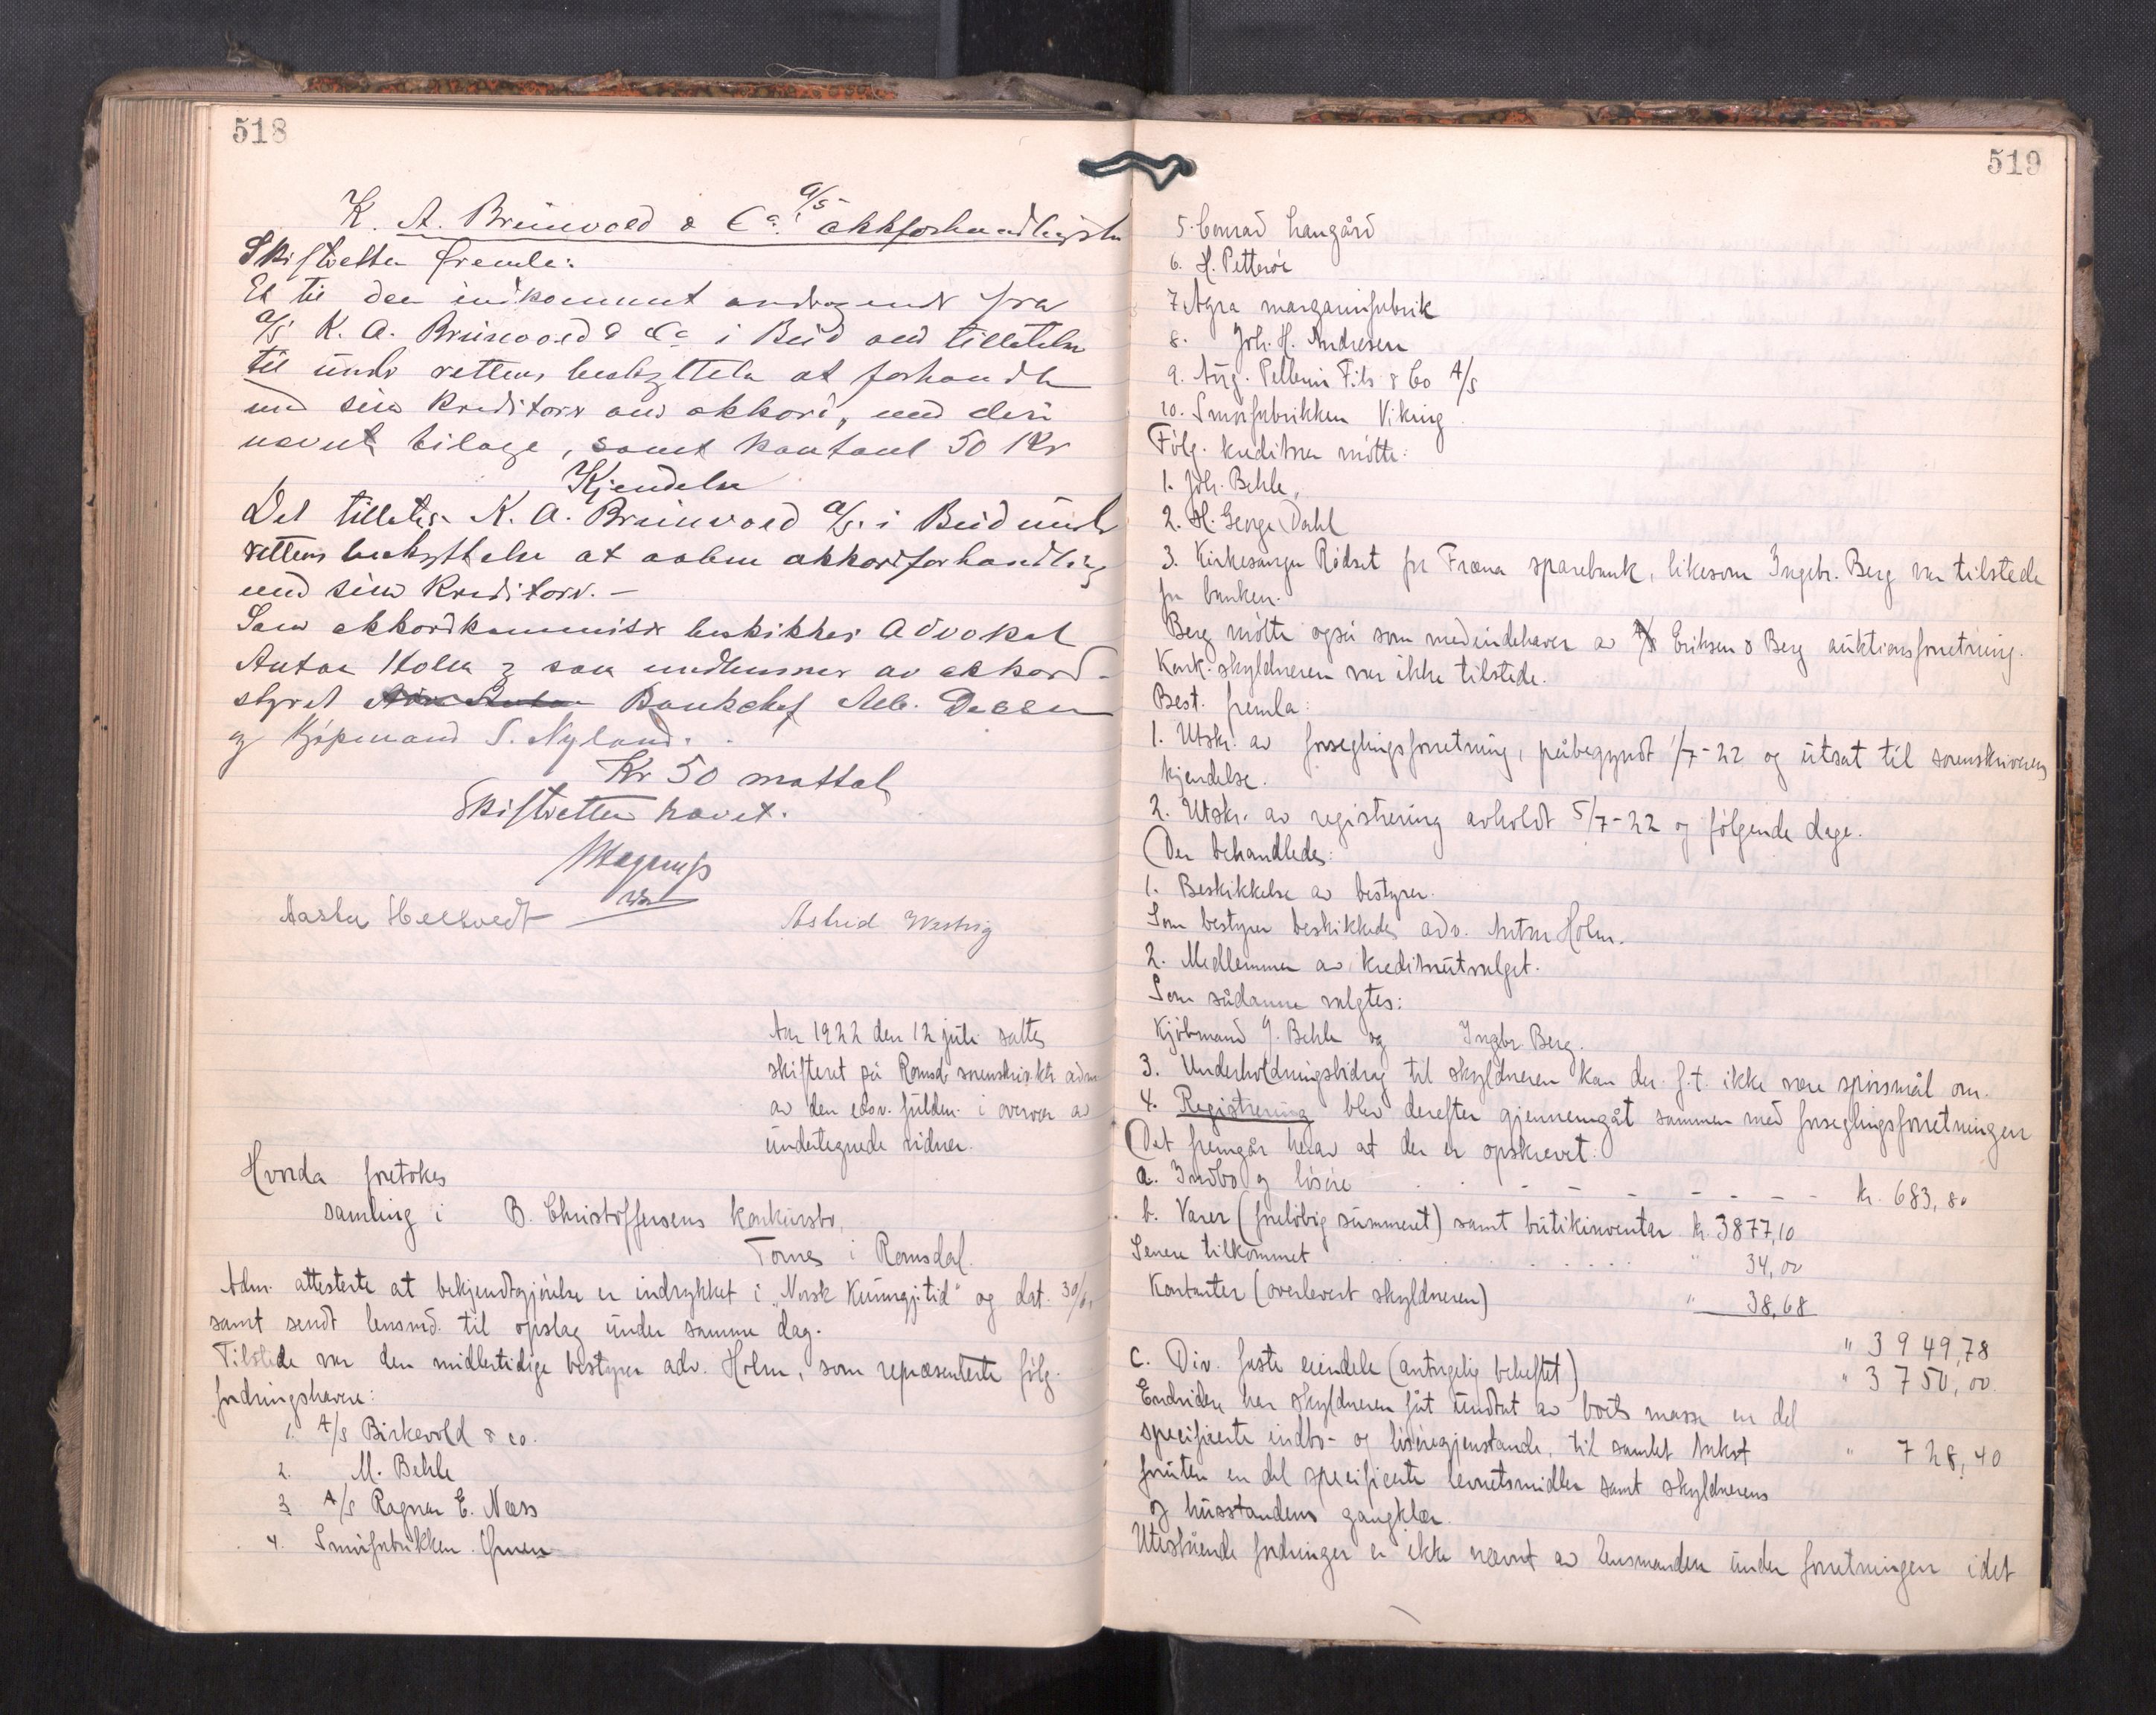 518
K. A. Brunvold & Co. a/s akkforhandlingsbo
Skifteretten fremla:
Et til den indkommet andragende fra
a/s K. A. Brunvold & Co i Bud om tillatelse
til under rettens beskyttelse at forhandle
med sine kreditorer om akkord, med deri
nevnte bilage, samt kontant 50 Kr
Kjendelse
Det tillates K. A. Brunvold a/s i Bud under
rettens beskyttelse at aabne akkordforhandling
med sine kreditorer. -
Som akkordkommissær beskikkes Advokat
Anton Holm og som medlemmer av akkord-
styret Bankchef Alb.
og Kjøpmand S. Nyland.
Kr 50 mottat
Skifteretten hævet.
Aasta Hellvedt
Astrid
Aar 1922 den 12 juli sattes
skifteret på Romsd. sorenskr.ktr. adm
av den edsv. fuldm. i overvær av
undertegnede vidner.
Hvorda foretokes
samling i B. Christoffersens konkursbo,
Tornes i Romsdal.
Adm. attesterte at bekjendtgjörelse er indrykket i "Norsk Kunngj.tid" og dat. 30/6,
samt sendt lensmd. til opslag under samme dag.
Tilstede var den midlertidige bestyrer adv. Holm, som repræsenterte fölg.
fordringshavere:
1. A/s Birkevold & co.
2. M. Behle
3 A/s Ragnar E. Næss
4. Smörfabrikken Ørnen
519
5. Conrad Langård
6. H. Petteröe
7 Agra margarinfabrik
8. Joh. H. Andresen
9. Aug. Pellerin Fils & Co A/s
10. Smörfabrikken Viking
Fölg. kreditorer mötte:
1. Joh. Behle,
2. H. George Dahl
3. Kirkesanger Rödset for Fræna sparebank, likesom Ingebr. Berg var tilstede
for banken.
Berg mötte også som medindehaver av Eriksen & Berg auktionsforretning.
Konk. skyldneren var ikke tilstede.
Best. fremla:
1. Utskr. av forseglingsforretning, påbegyndt 1/7-22 og utsat til sorenskriverens
kjendelse.
2. Utskr. av registrering avholdt 5/7-22 og fölgende dage.
Der behandledes:
1. Beskikkelse av bestyrer.
Som bestyrer beskikkedes adv. Anton Holm.
2. Medlemmer av kreditorutvalget.
Som sådanne valgtes:
Kjöbmand J. Behle og Ingbr. Berg.
3. Underholdningsbidrag til skyldneren kan der f.t. ikke være spörsmål om.
4. Registrering blev derefter gjennemgåt sammen med forseglingsforretningen
Det fremgår herav at der er opskrevet:
a. Indbo og lösöre kr. 683,80
b. Varer (forelöbig summeret) samt butikinventar kr. 3877,10
Senere tilkommet " 34,00
Kontanter (overlevert skyldneren) " 38,68
" 3949,78
c. Div. faste eiendele (antagelig beheftet) " 3750,00
Endvidere har skyldneren fåt undtat av boets masse en del
specificerte indbo- og lösöregjenstande, til samlet takst " 728,40
foruten en del specificerte levnetsmidler samt skyldnerens
og husstandens gangklær.
Utestående fordringer er ikke nævnt av lensmanden under forretningen idet